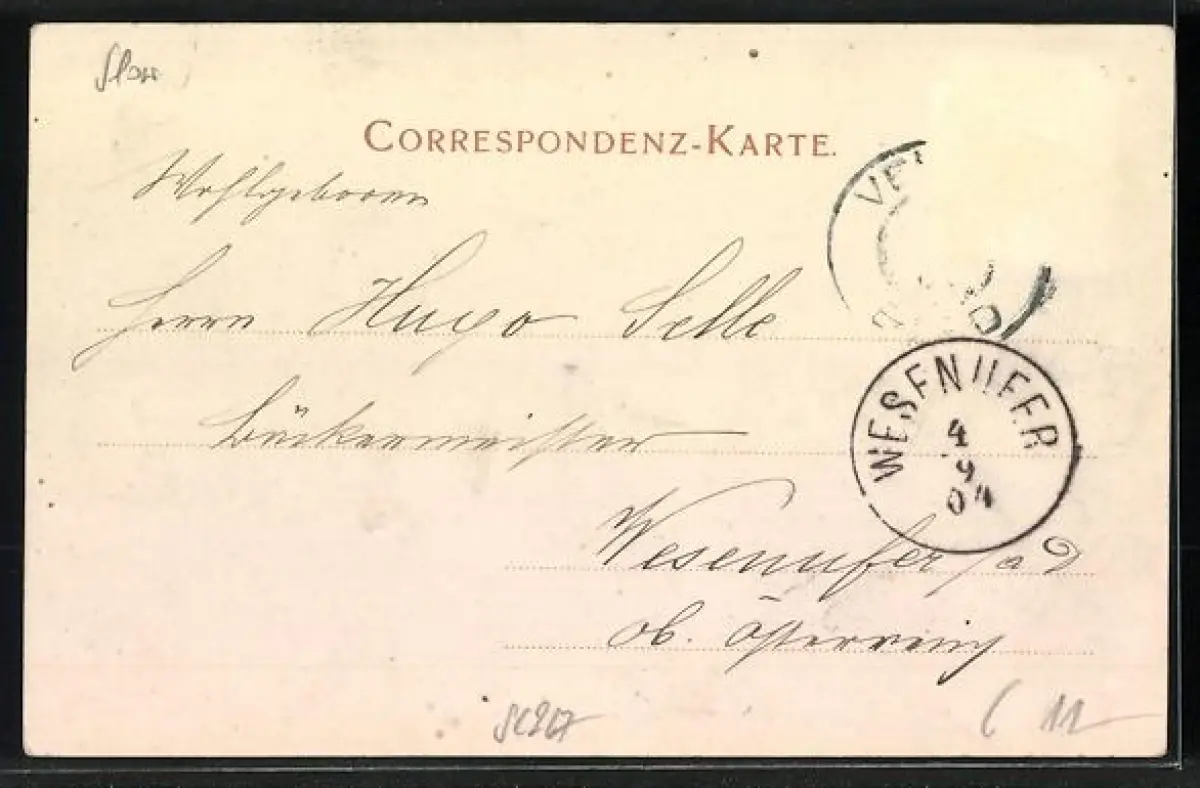 Slow
CORRESPONDENZ-KARTE.
Wohlgeboren
Herrn Hugo Selle
Bäckermeister
Wesenufer a/D
ob. Österreich
VE
WESENUFER
4
9
04
11